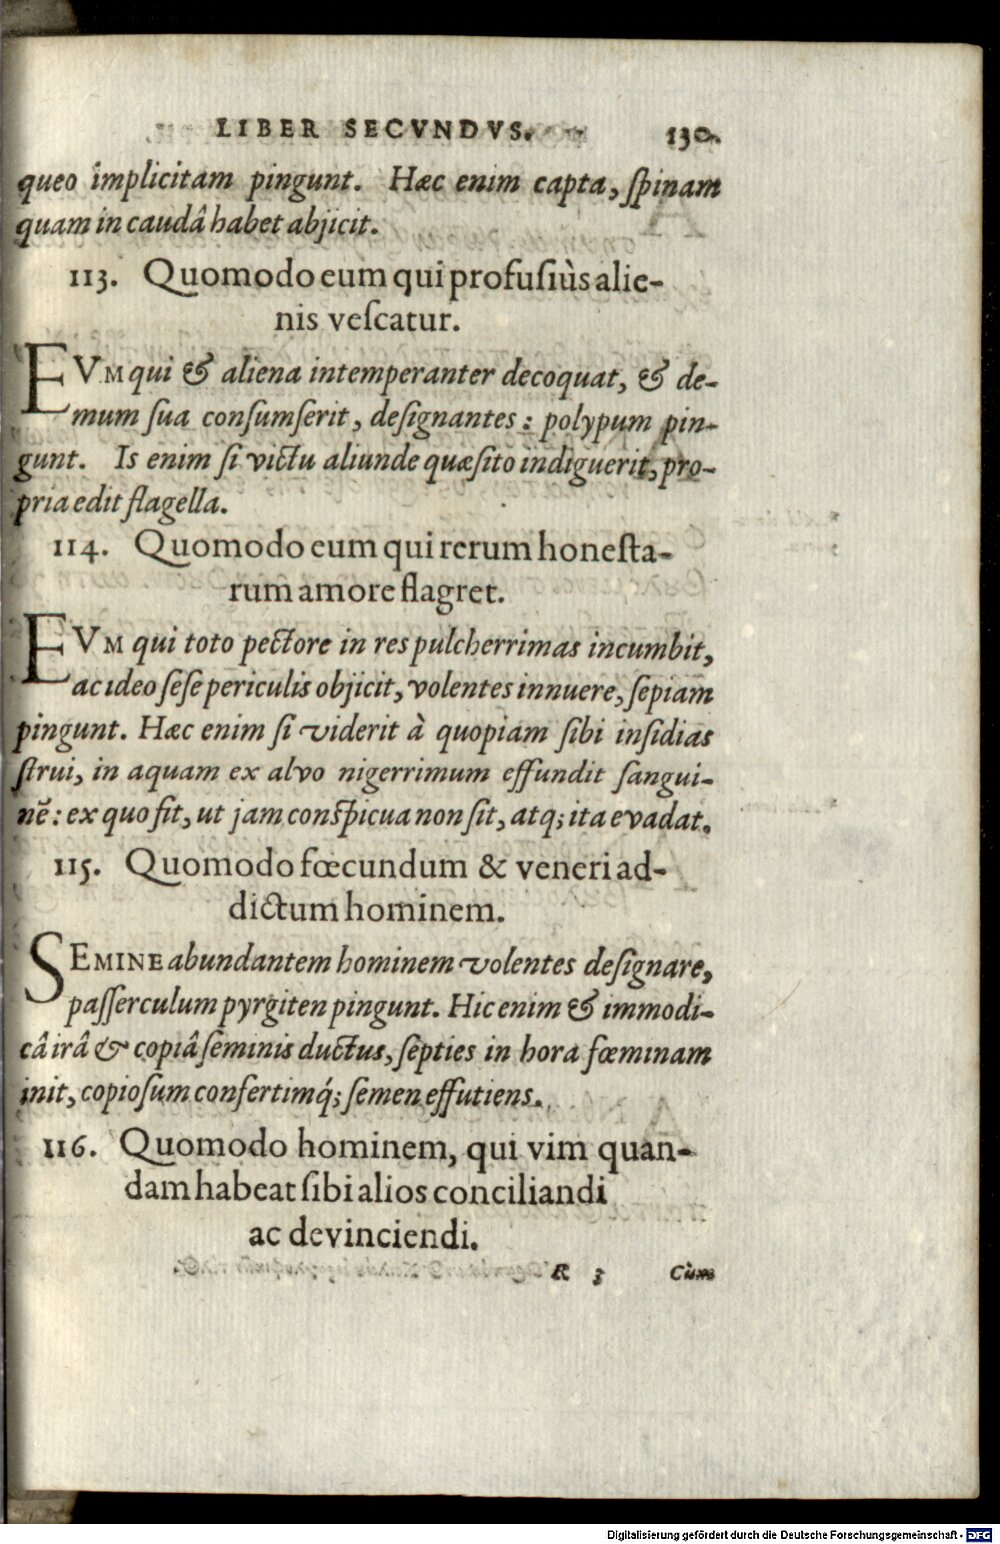 LIBER SECVNDVS. 130.
queo implicitam pingunt. Hæc enim capta, ſpinam
quam in caudâ habet abjicit.
113. Quomodo eum qui profuſiùs alie-
nis veſcatur.
EVM qui & aliena intemperanter decoquat, & de-
mum ſua conſumſerit, deſignantes: polypum pin-
gunt. Is enim ſi victu aliunde quæſito indiguerit, pro-
pria edit flagella.
114. Quomodo eum qui rerum honeſta-
rum amore flagret.
EVM qui toto pectore in res pulcherrimas incumbit,
ac ideo ſeſe periculis objicit, volentes innuere, ſepiam
pingunt. Hæc enim ſi viderit à quopiam ſibi inſidias
ſtrui, in aquam ex alvo nigerrimum effundit ſangui-
nē: ex quo fit, ut jam conſpicua non ſit, atq; ita evadat.
115. Quomodo fœcundum & veneri ad-
dictum hominem.
SEMINE abundantem hominem volentes deſignare,
paſſerculum pyrgiten pingunt. Hic enim & immodi-
câ irâ & copiâ ſeminis ductus, ſepties in hora fœminam
init, copioſum confertimq́; ſemen effutiens.
116. Quomodo hominem, qui vim quan-
dam habeat ſibi alios conciliandi
ac devinciendi.
R 3 Cùm
Digitalisierung gefördert durch die Deutsche Forschungsgemeinschaft - DFG